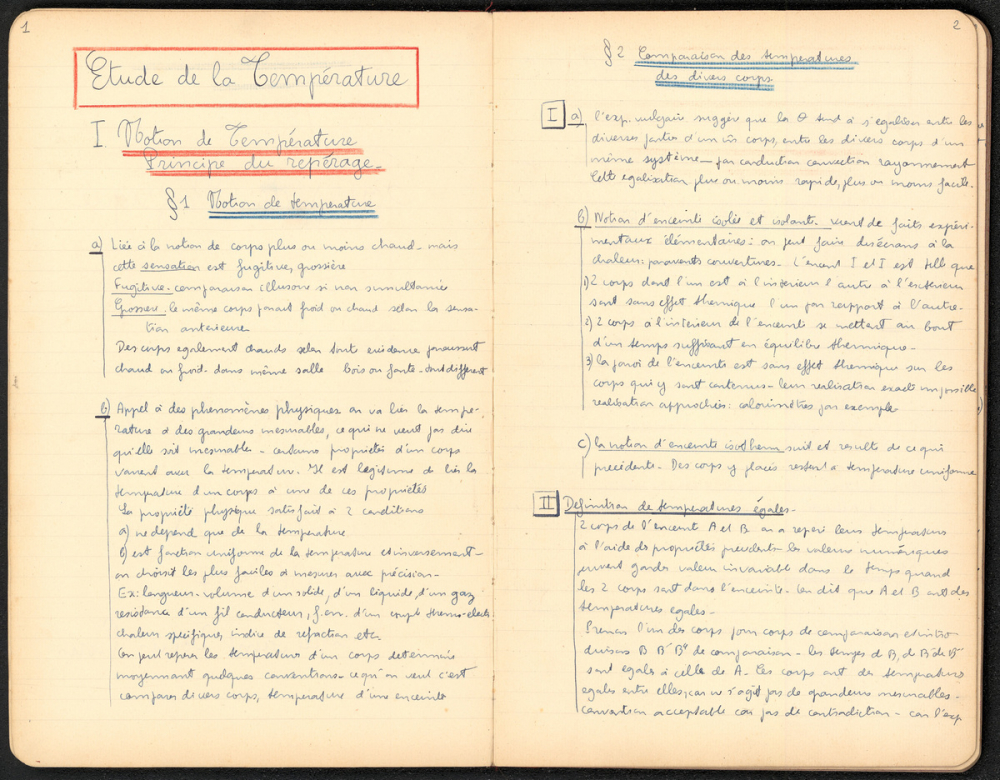 1
Etude de la Température
I. Notion de Température
Principe du repérage.
§1 Notion de température
a) Liée à la notion de corps plus ou moins chaud - mais
cette sensation est fugitive, grossière
Fugitive: comparaison illusoire si non simultanée
Grossière: le même corps parait froid ou chaud selon la sensa-
tion antérieure
Des corps egalement chauds selon toute evidence paraissent
chaud ou froid - dans même salle bois ou fonte - sont different
b) Appel à des phenomènes physiques on va lier la tempe-
rature à des grandeurs mesurables, ce qui ne veut pas dire
qu'elle soit mesurable - certaines propriétés d'un corps
varient avec la temperature. Il est legitime de lier la
température d'un corps à une de ces propriétés
La propriété physique satisfait à 2 conditions
a) ne depend que de la temperature
b) est fonction uniforme de la temperature et inversement -
on choisit les plus faciles à mesurer avec précision -
Ex: longueur - volume d'un solide, d'un liquide, d'un gaz
resistance d'un fil conducteur, f.em. d'un couple thermo-electr
chaleur spécifiques indice de refraction etc.
On peut reperer les temperatures d'un corps determiné
moyennant quelques conventions - ce qu'on veut c'est
comparer divers corps, temperature d'une enceinte
2
§2 Comparaison des temperatures
des divers corps.
I a) l'exp. vulgaire suggère que la θ tend à s'égaliser entre les
diverses parties d'un m̂ corps, entre les divers corps d'un
même système - par conduction convection rayonnement
Cette egalisation plus ou moins rapide, plus ou moins facile.
b) Notion d'enceinte isolée et isolante - vient de faits expéri-
mentaux élémentaires: on peut faire des écrans à la
chaleur: paravents couvertures - L'enceint I et I est telle que
1) 2 corps dont l'un est à l'intérieur l'autre à l'extérieur
sont sans effet thermique l'un par rapport à l'autre -
2) 2 corps à l'intérieur de l'enceinte se mettent au bout
d'un temps suffisant en équilibre thermique -
3) la paroi de l'enceinte est sans effet thermique sur les
corps qui y sont contenus - leur realisation exacte impossible
realisation approchée: calorimètres par exemple
c) la notion d'enceinte isotherm suit et result de ce qui
precedente - Des corps y placés restent à temperature uniforme
II Definition de temperatures égales -
2 corps de l'enceint A et B on a reperé leurs temperatures
à l'aide des propriétés precedents - les valeurs numériques
peuvent garder valeur invariable dans le temps quand
les 2 corps sont dans l'enceinte - on dit que A et B ont des
temperatures egales -
Prenons l'un des corps pour corps de comparaison et intro
duisons B B' B'' de comparaison - les temp es d B, d B' de B''
sont egales à celle de A - Les corps ont des temperatures
egales entre elles, car ne s'agit pas de grandeurs mesurables -
Convention acceptable car pas de contradiction - car l'exp